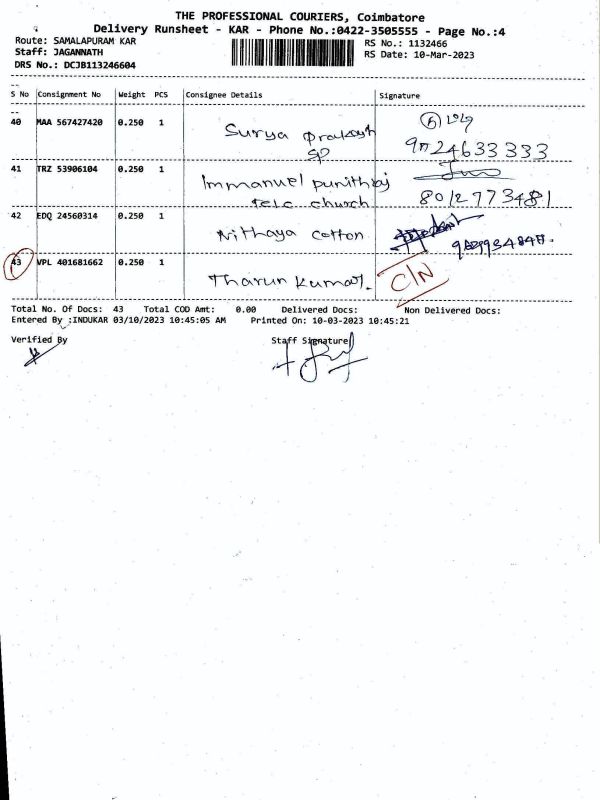 THE PROFESSIONAL COURIERS, Coimbatore
Delivery Runsheet - KAR - Phone No.:0422-3505555 - Page No.:4
Route: SAMALAPURAM KAR RS No.: 1132466
Staff: JAGANNATH RS Date: 10-Mar-2023
DRS No.: DCJB113246604
S No Consignment No Weight PCS Consignee Details Signature
40 MAA 567427420 0.250 1 Surya prakash
SP
41 TRZ 53906104 0.250 1 Immanuel punithraj
telc church 8012973481
42 EDQ 24560314 0.250 1 Nithaya cotton
43 VPL 401681662 0.250 1 Tharun Kumar. C/N
Total No. Of Docs: 43 Total COD Amt: 0.00 Delivered Docs: Non Delivered Docs:
Entered By :INDUKAR 03/10/2023 10:45:05 AM Printed On: 10-03-2023 10:45:21
Verified By Staff Signature